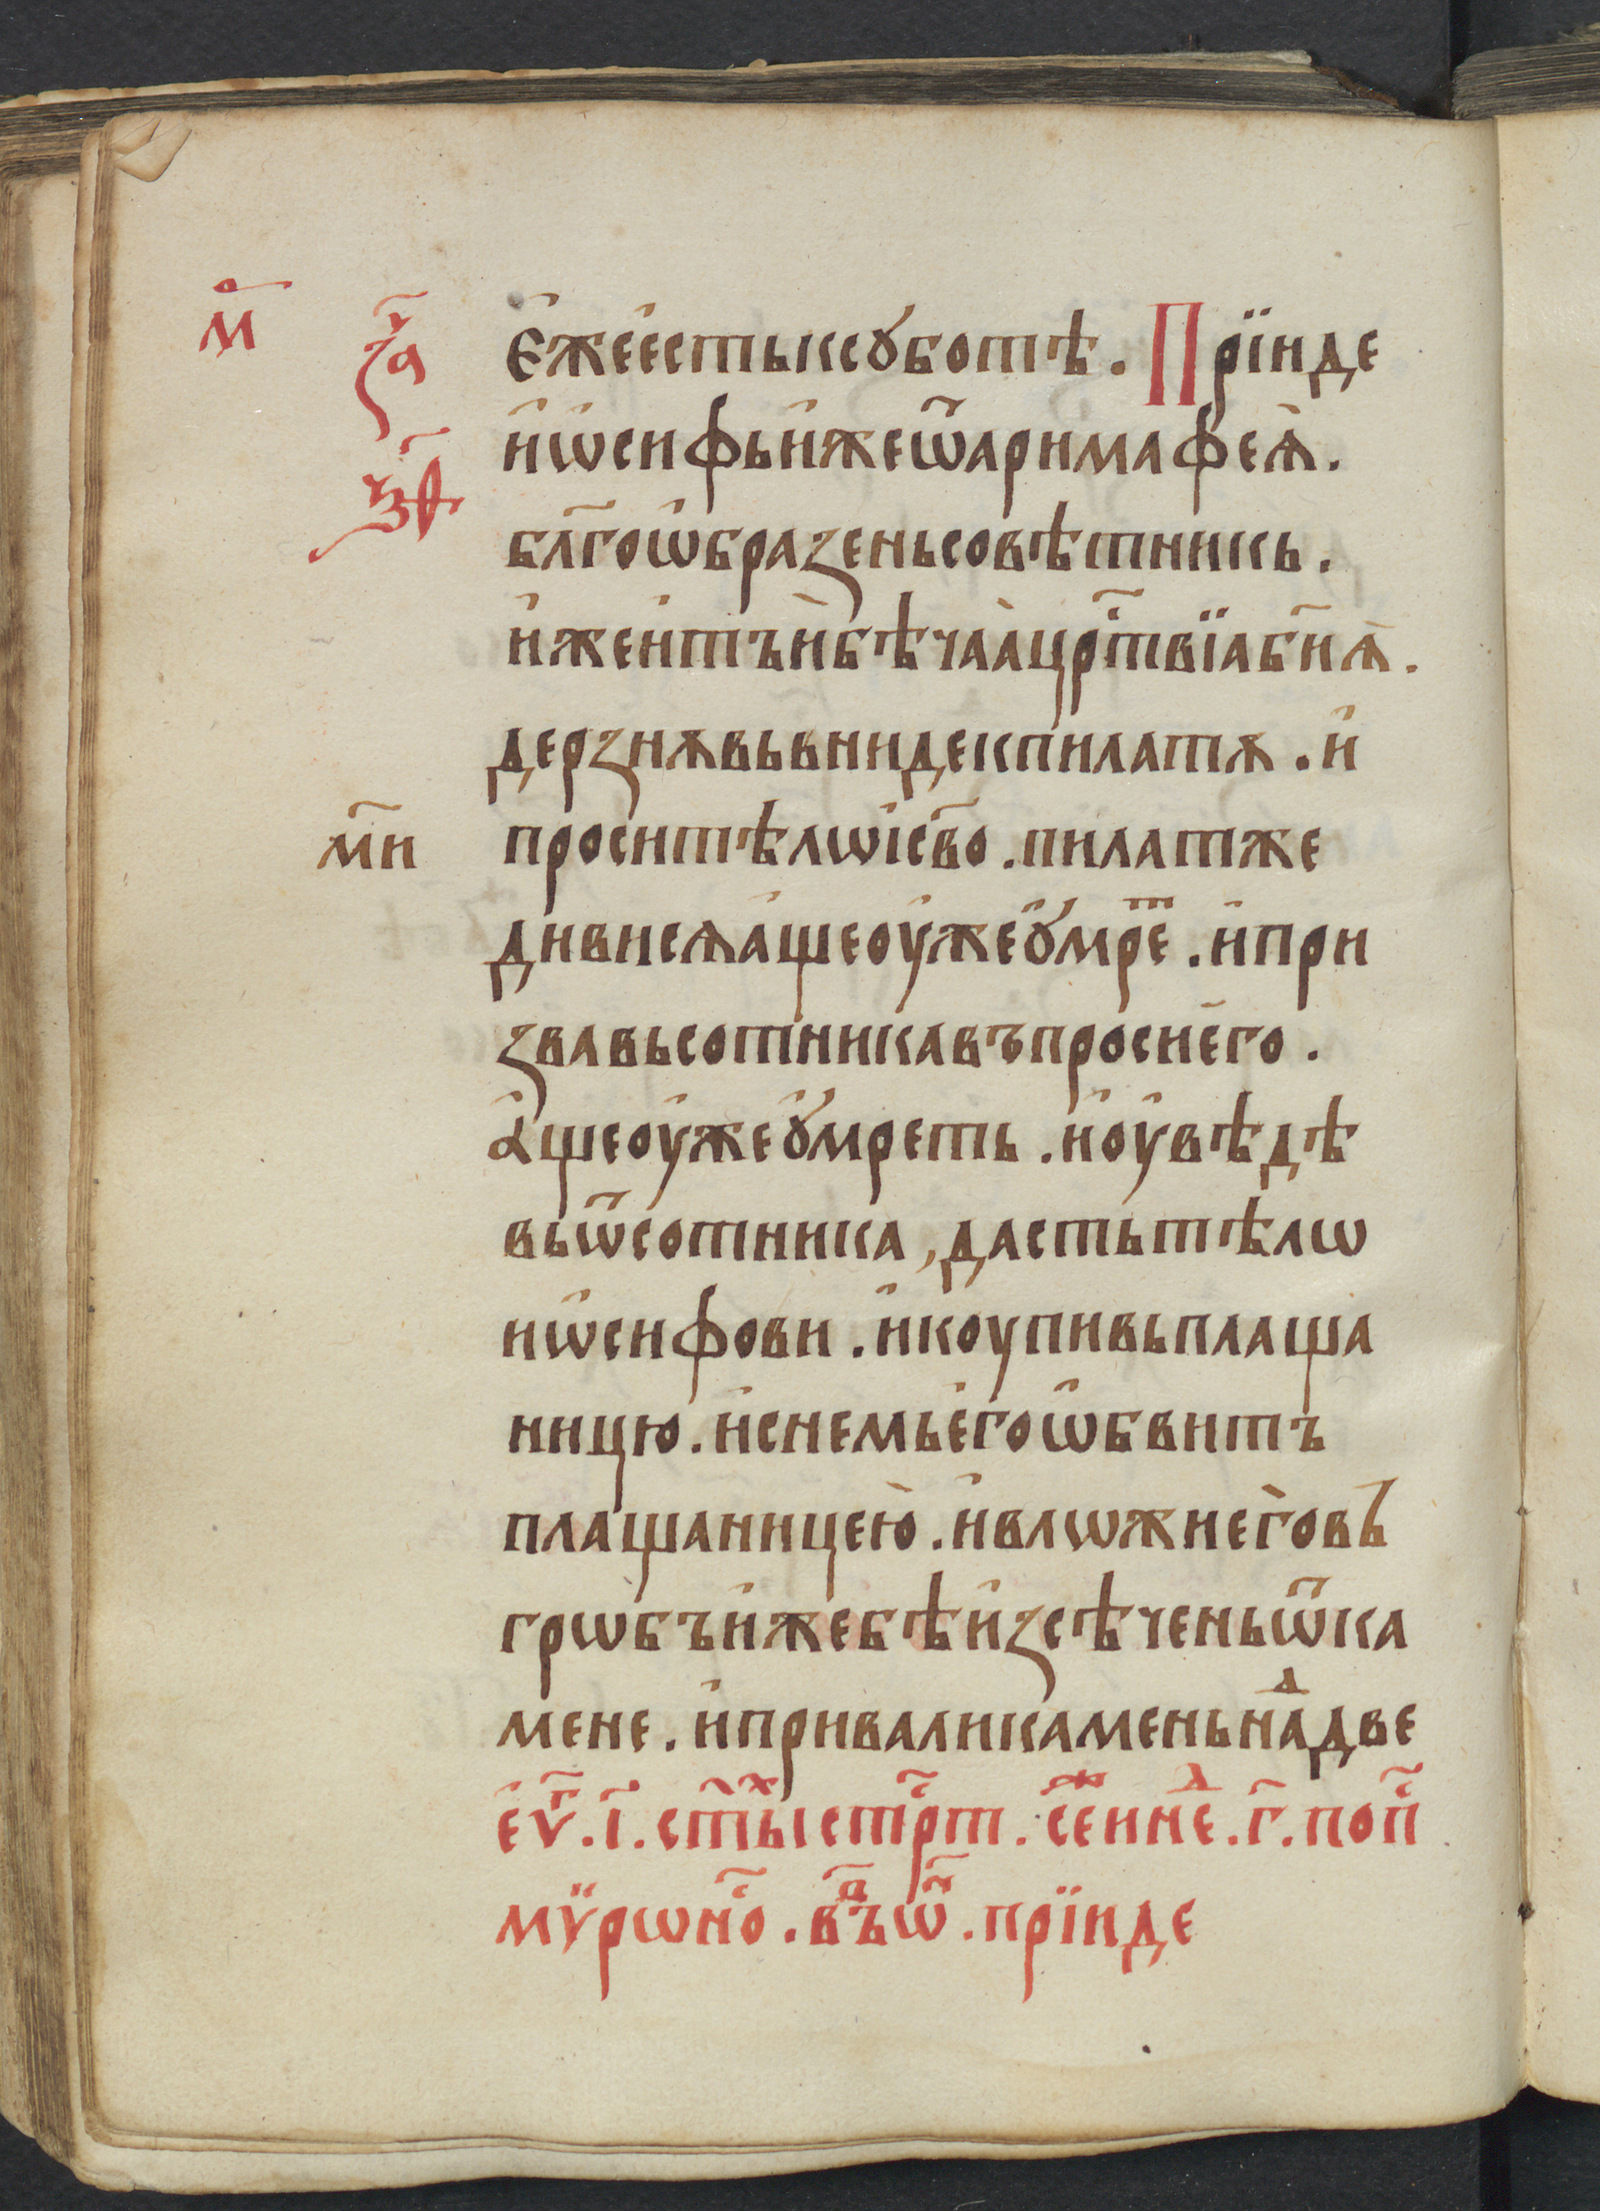 м҃ зач҃
ѯ҃ѳ
е҆жеестьксꙋботѣ . Прїиде
и҆ѡ҆сифьи҆жеѿаримафеѧ .
бл҃гоѡ҆бразеньсовѣтникь .
и҆жеи҆тъи҆бѣчаѧ̀ацр҃твїаб҃иѧ .
дерзнѫвьвнидекпилатѫ . и҆
проситѣлѡі҆с҃во . пилатже
м҃и
дивисѧа҆щеоу҆жеꙋ҆мрⷮе . и҆при
звавьсотникавъпросиего .
а҆щеоу҆жеꙋ҆мреть . и҆оу҆вѣдѣ
вьѿсотника , дастьтѣлѡ
иѡ҆сифови . и҆коупивьплаща
ницю . и҆снемье҆гоѡ҆бвитъ
плащаницею̀ . и҆влѡжие҆говъ
грѡбъи҆жебѣи҆зсѣченьѿка
мене . и҆приваликаменьнаⷣдве
е҆ѵⷢ . і҃ . ст҃ыⷯстрⷭт . сжⷷннеⷧ . г҃ . попⷭ
мѷрѡнⷭо . въⷣѿ . прїиде